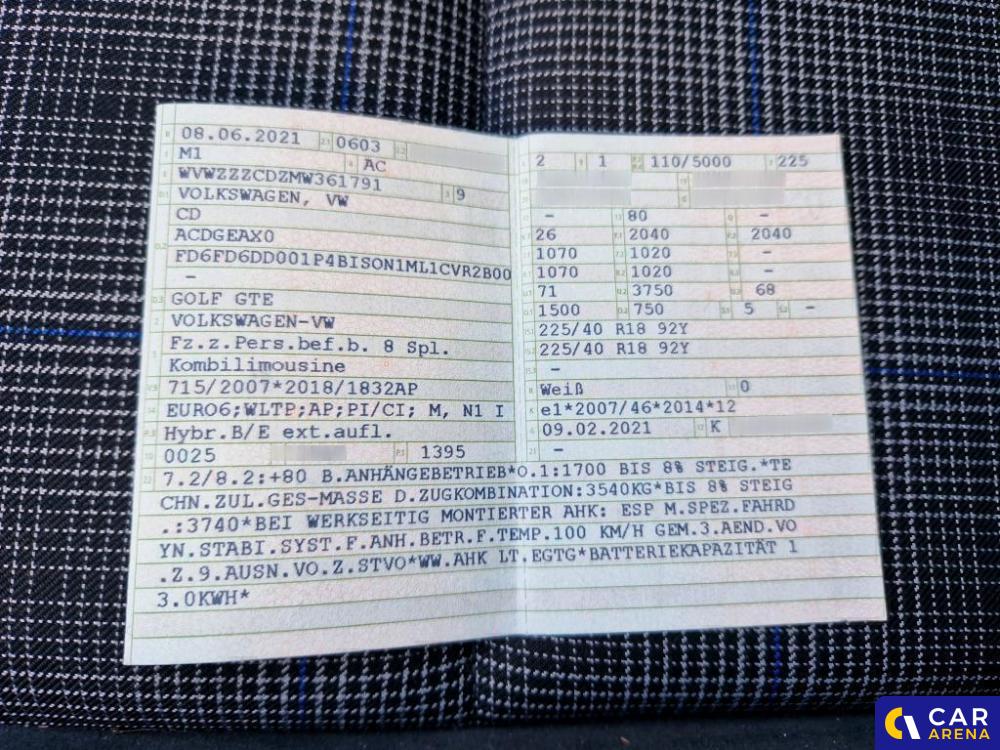 08.06.2021 0603
M1 AC
WVWZZZCDZMW361791 9
VOLKSWAGEN, VW
CD
ACDGEAX0
FD6FD6DD001P4BISON1ML1CVR2B00
–
GOLF GTE
VOLKSWAGEN-VW
Fz.z.Pers.bef.b. 8 Spl.
Kombilimousine
715/2007*2018/1832AP
EURO6;WLTP;AP;PI/CI; M, N1 I
Hybr.B/E ext.aufl.
0025 1395
2 1 110/5000 225
– 80 –
26 2040 2040
1070 1020 –
1070 1020 –
71 3750 68
1500 750 5 –
225/40 R18 92Y
225/40 R18 92Y
–
Weiß 0
e1*2007/46*2014*12
09.02.2021 K
–
7.2/8.2:+80 B.ANHÄNGEBETRIEB*O.1:1700 BIS 8% STEIG.*TE
CHN.ZUL.GES-MASSE D.ZUGKOMBINATION:3540KG*BIS 8% STEIG
.:3740*BEI WERKSEITIG MONTIERTER AHK: ESP M.SPEZ.FAHRD
YN.STABI.SYST.F.ANH.BETR.F.TEMP.100 KM/H GEM.3.AEND.VO
.Z.9.AUSN.VO.Z.STVO*WW.AHK LT.EGTG*BATTERIEKAPAZITÄT 1
3.0KWH*
CAR
ARENA